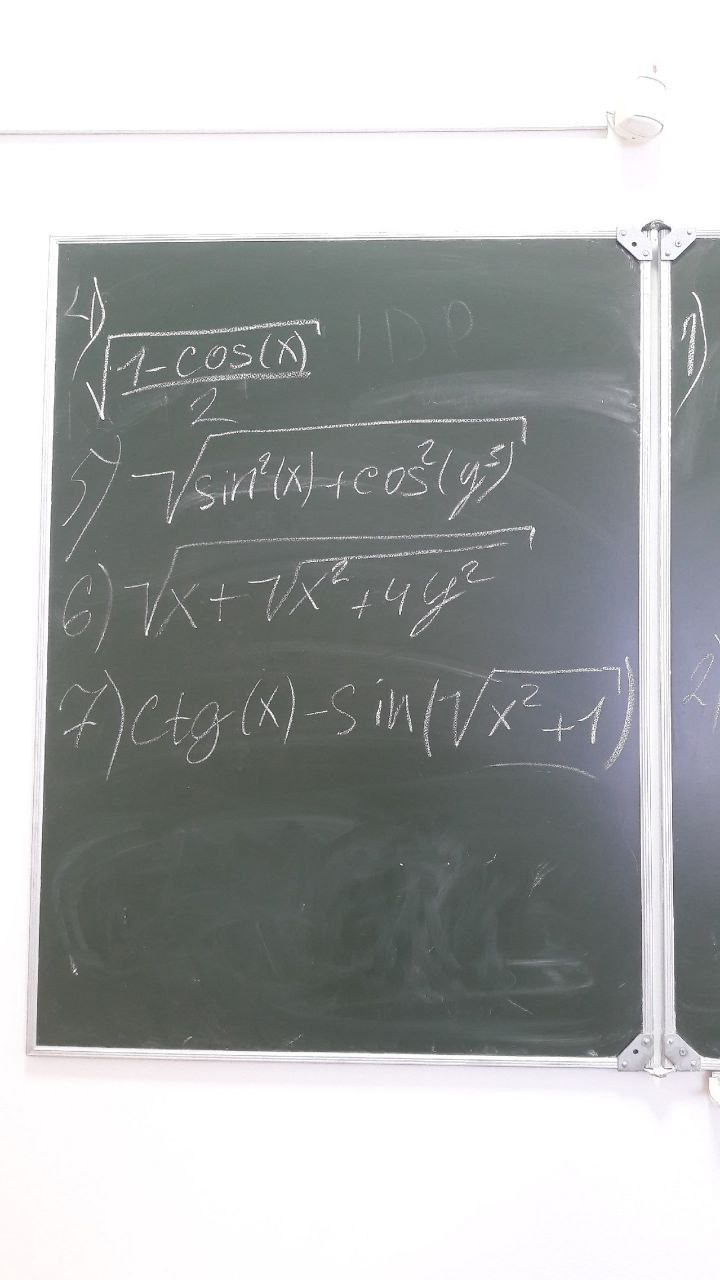 4) √((1-cos(x))/2)
5) √(sin²(x)+cos²(y³))
6) √(x+√(x²+4y²))
7) ctg(x)-sin(√(x²+1))
1)
2)